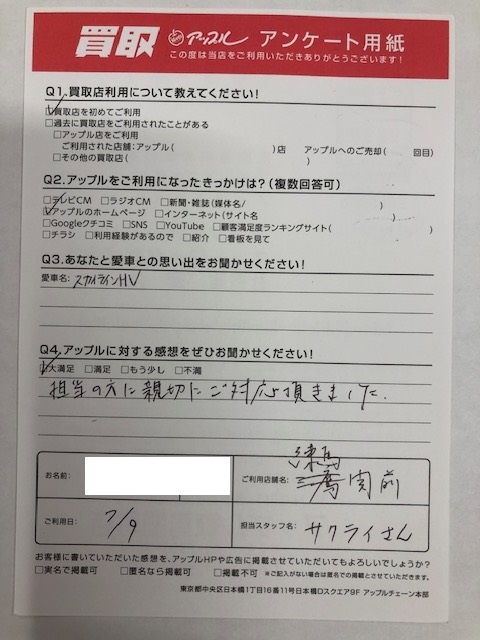 買取 アップル アンケート用紙
この度は当店をご利用いただきありがとうございます!
Q1.買取店利用について教えてください!
☑買取店を初めてご利用
□過去に買取店をご利用されたことがある
□アップル店をご利用
ご利用された店舗:アップル( )店 アップルへのご売却( 回目)
□その他の買取店( )
Q2.アップルをご利用になったきっかけは?(複数回答可)
□テレビCM □ラジオCM □新聞・雑誌(媒体名/ )
☑アップルのホームページ □インターネット(サイト名 )
□Googleクチコミ □SNS □YouTube □顧客満足度ランキングサイト( )
□チラシ □利用経験があるので □紹介 □看板を見て
Q3.あなたと愛車との思い出をお聞かせください!
愛車名: スカイラインHV
Q4.アップルに対する感想をぜひお聞かせください!
☑大満足 □満足 □もう少し □不満
担当の方に親切にご対応頂きました.
お名前:
ご利用店舗名: 練馬関前
ご利用日: 7/9
担当スタッフ名: サクライさん
お客様に書いていただいた感想を、アップルHPや広告に掲載させていただいてもよろしいでしょうか?
□実名で掲載可 □匿名なら掲載可 □掲載不可 ※ご記入がない場合は匿名での掲載とさせていただきます。
東京都中央区日本橋1丁目16番11号日本橋Dスクエア9F アップルチェーン本部